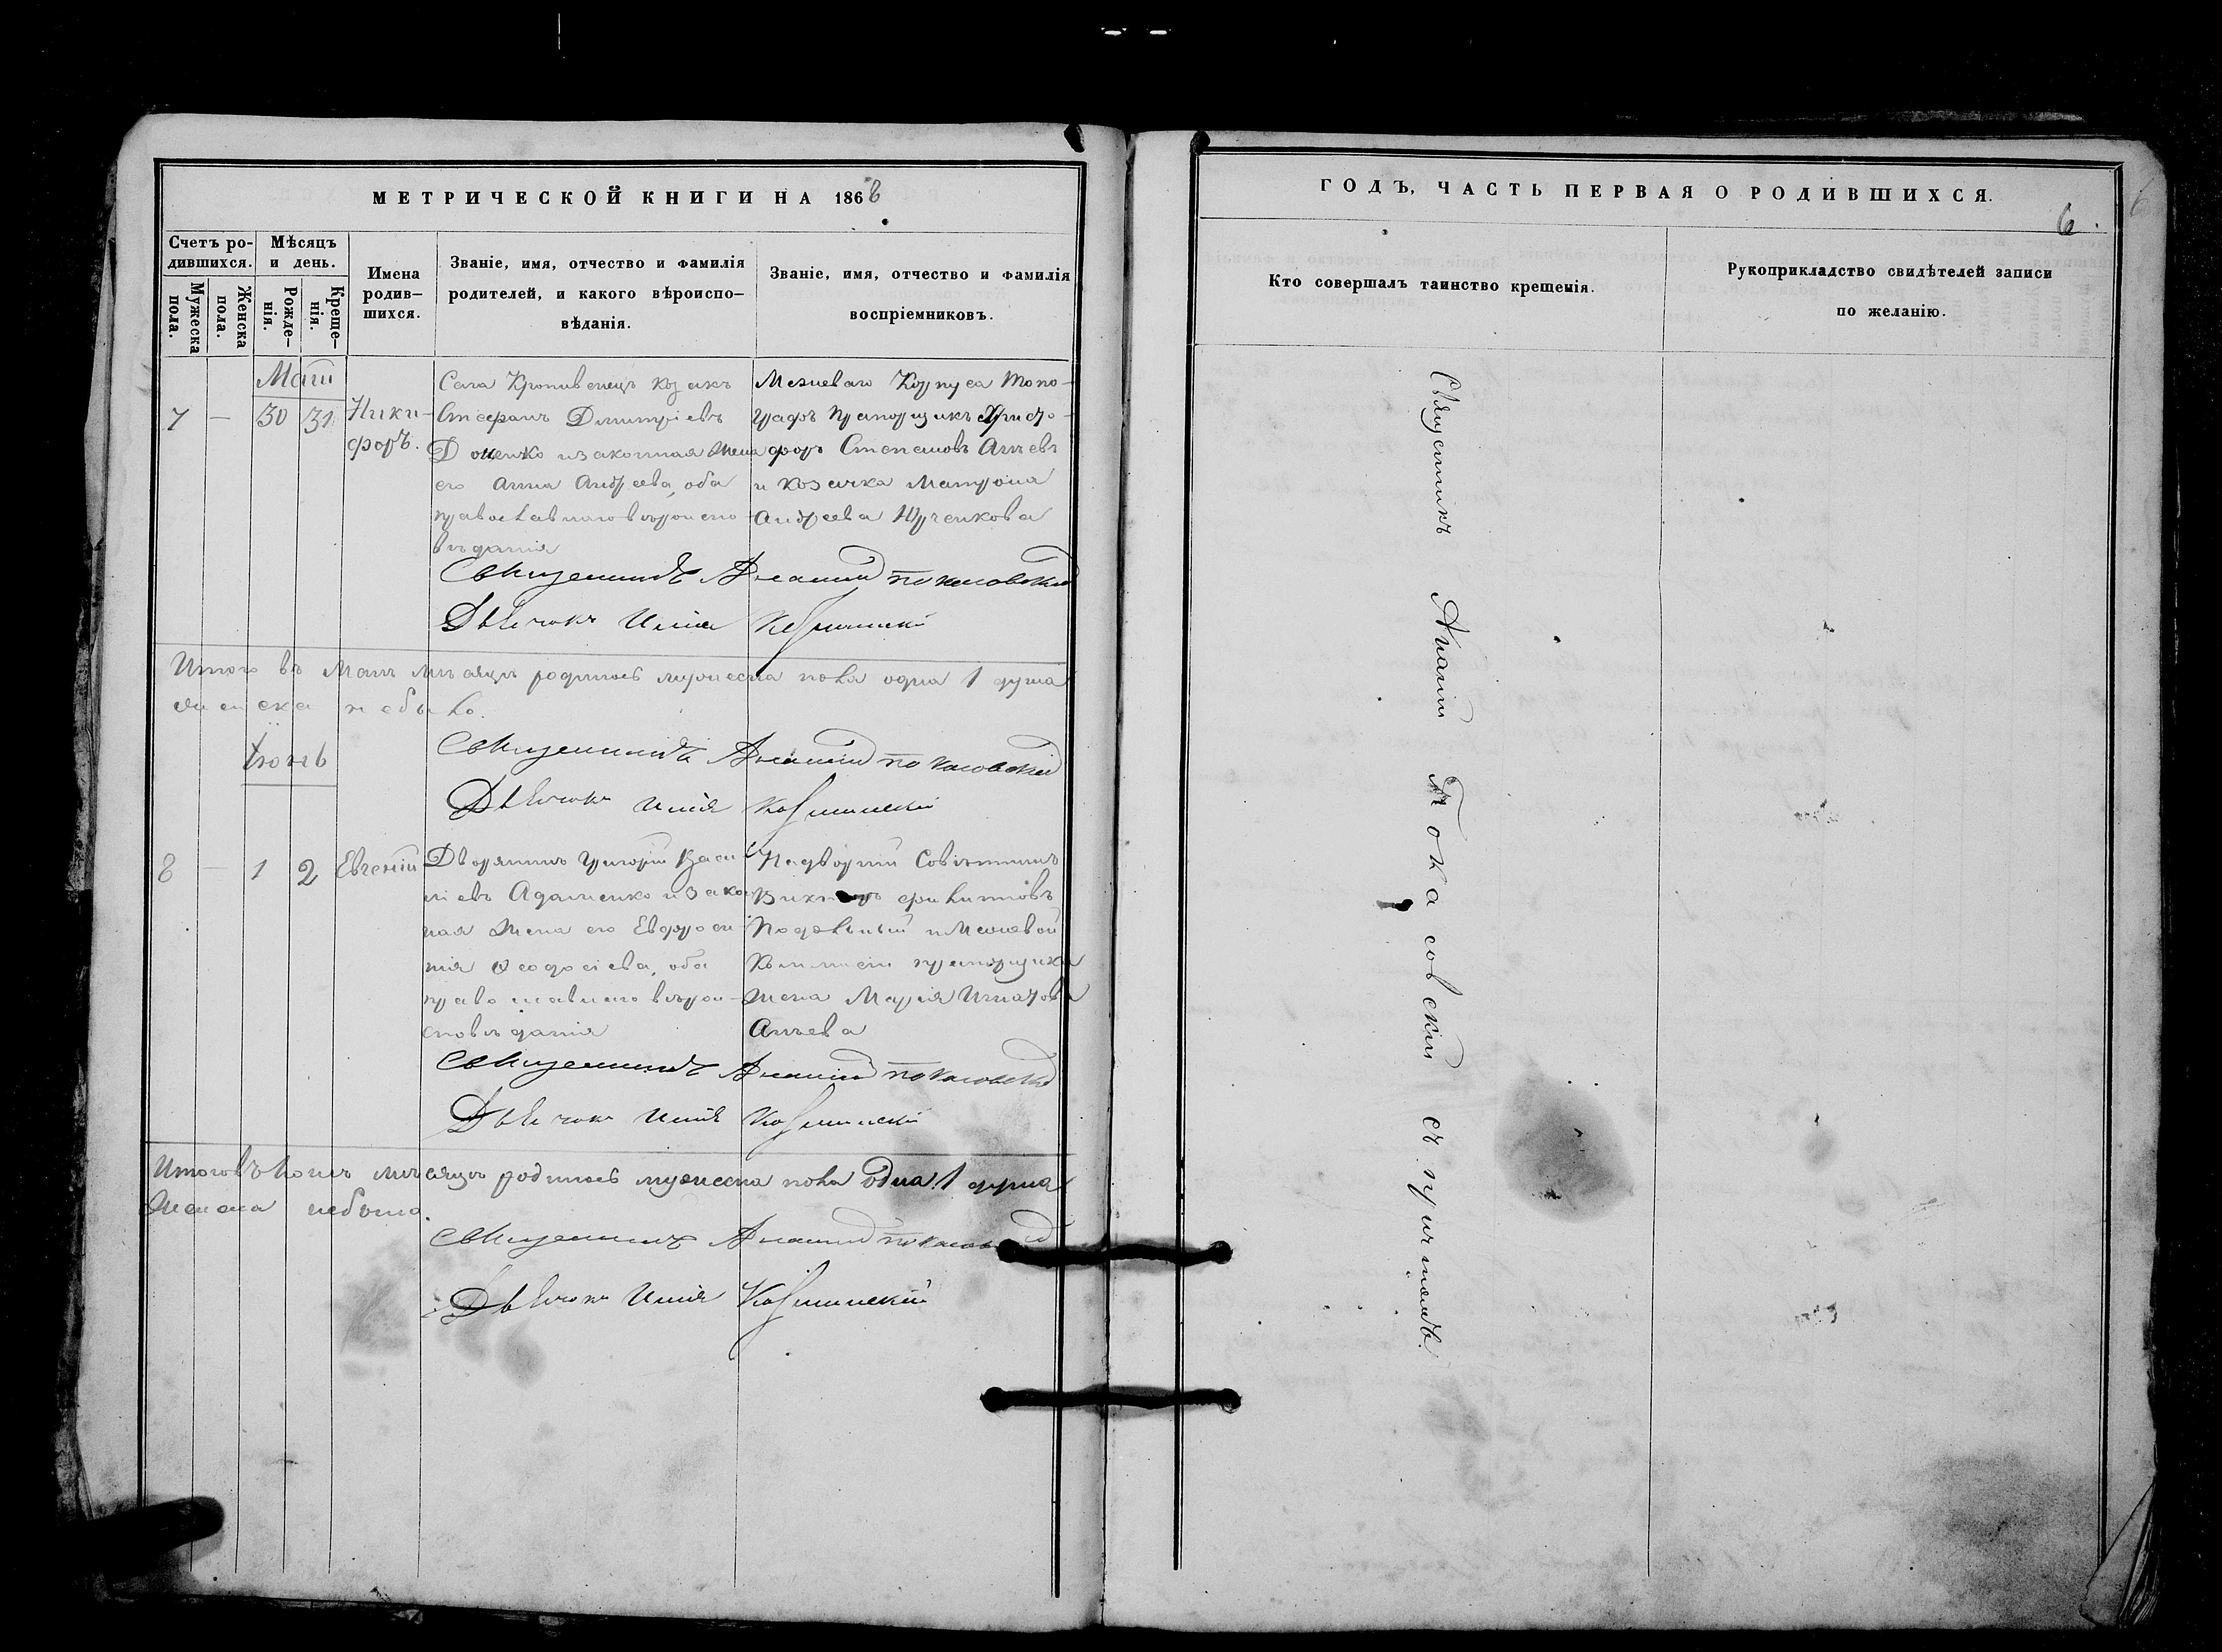 МЕТРИЧЕСКОЙ КНИГИ НА 1868
Счетъ ро-
дившихся.
Мѣсяцъ
и день.
Мужеска
пола.
Женска
пола.
Рожде-
нія.
Креще-
нія.
Имена
родив-
шихся.
Званіе, имя, отчество и фамилія
родителей, и какого вѣроиспо-
вѣданія.
Званіе, имя, отчество и фамилія
воспріемниковъ.
Май
7 — 30 31
Ники-
форъ.
Села Кропивенецъ козакъ
Стефанъ Дмитріевъ
Доценко и законная жена
его Анна Андреева, оба
православнаго вѣроиспо-
вѣданія
Межеваго Корпуса Топо-
графъ Прапорщикъ Христо-
форъ Степановъ
и козачка Матрона
Андреева Юрченкова
Священникъ Ананій Покасовскій
Дьячокъ Илія
Итого въ Маѣ мѣсяцѣ родилось мужеска пола одна 1 душа
женска небыло.
Священникъ Ананій Покасовскій
Дьячокъ Илія
Іюнь
8 — 1 2 Евгеній
Дворянинъ Григорій Васи-
ліевъ Адаменко и закон-
ная жена его Евфроси-
нія Ѳеодосіева, оба
православнаго вѣрои-
сповѣданія
Надворный Совѣтникъ
Викторъ Филиповъ
и Межевой
Коммисіи прапорщика
жена Марія Игнатова
Священникъ Ананій Покасовскій
Дьячокъ Илія
Итого въ Іюнѣ мѣсяцѣ родилось мужеска пола одна 1 душа
Женска небыло.
Священникъ Ананій
Дьячокъ Илія
ГОДЪ, ЧАСТЬ ПЕРВАЯ О РОДИВШИХСЯ.
6.
Кто совершалъ таинство крещенія.
Рукоприкладство свидѣтелей записи
по желанію.
Священникъ Ананій Покасовскій съ причтомъ.